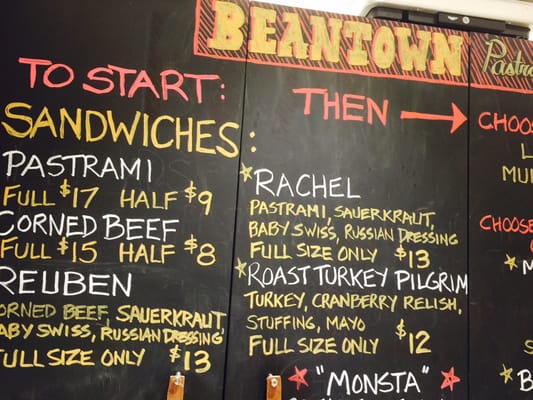 BEANTOWN
Pastra
TO START:
SANDWICHES:
PASTRAMI
FULL $17 HALF $9
CORNED BEEF
FULL $15 HALF $8
REUBEN
CORNED BEEF, SAUERKRAUT,
BABY SWISS, RUSSIAN DRESSING
FULL SIZE ONLY $13
THEN →
RACHEL
PASTRAMI, SAUERKRAUT,
BABY SWISS, RUSSIAN DRESSING
FULL SIZE ONLY $13
ROAST TURKEY PILGRIM
TURKEY, CRANBERRY RELISH,
STUFFING, MAYO
FULL SIZE ONLY $12
"MONSTA"
CHOOS
L
MUL
CHOOSE